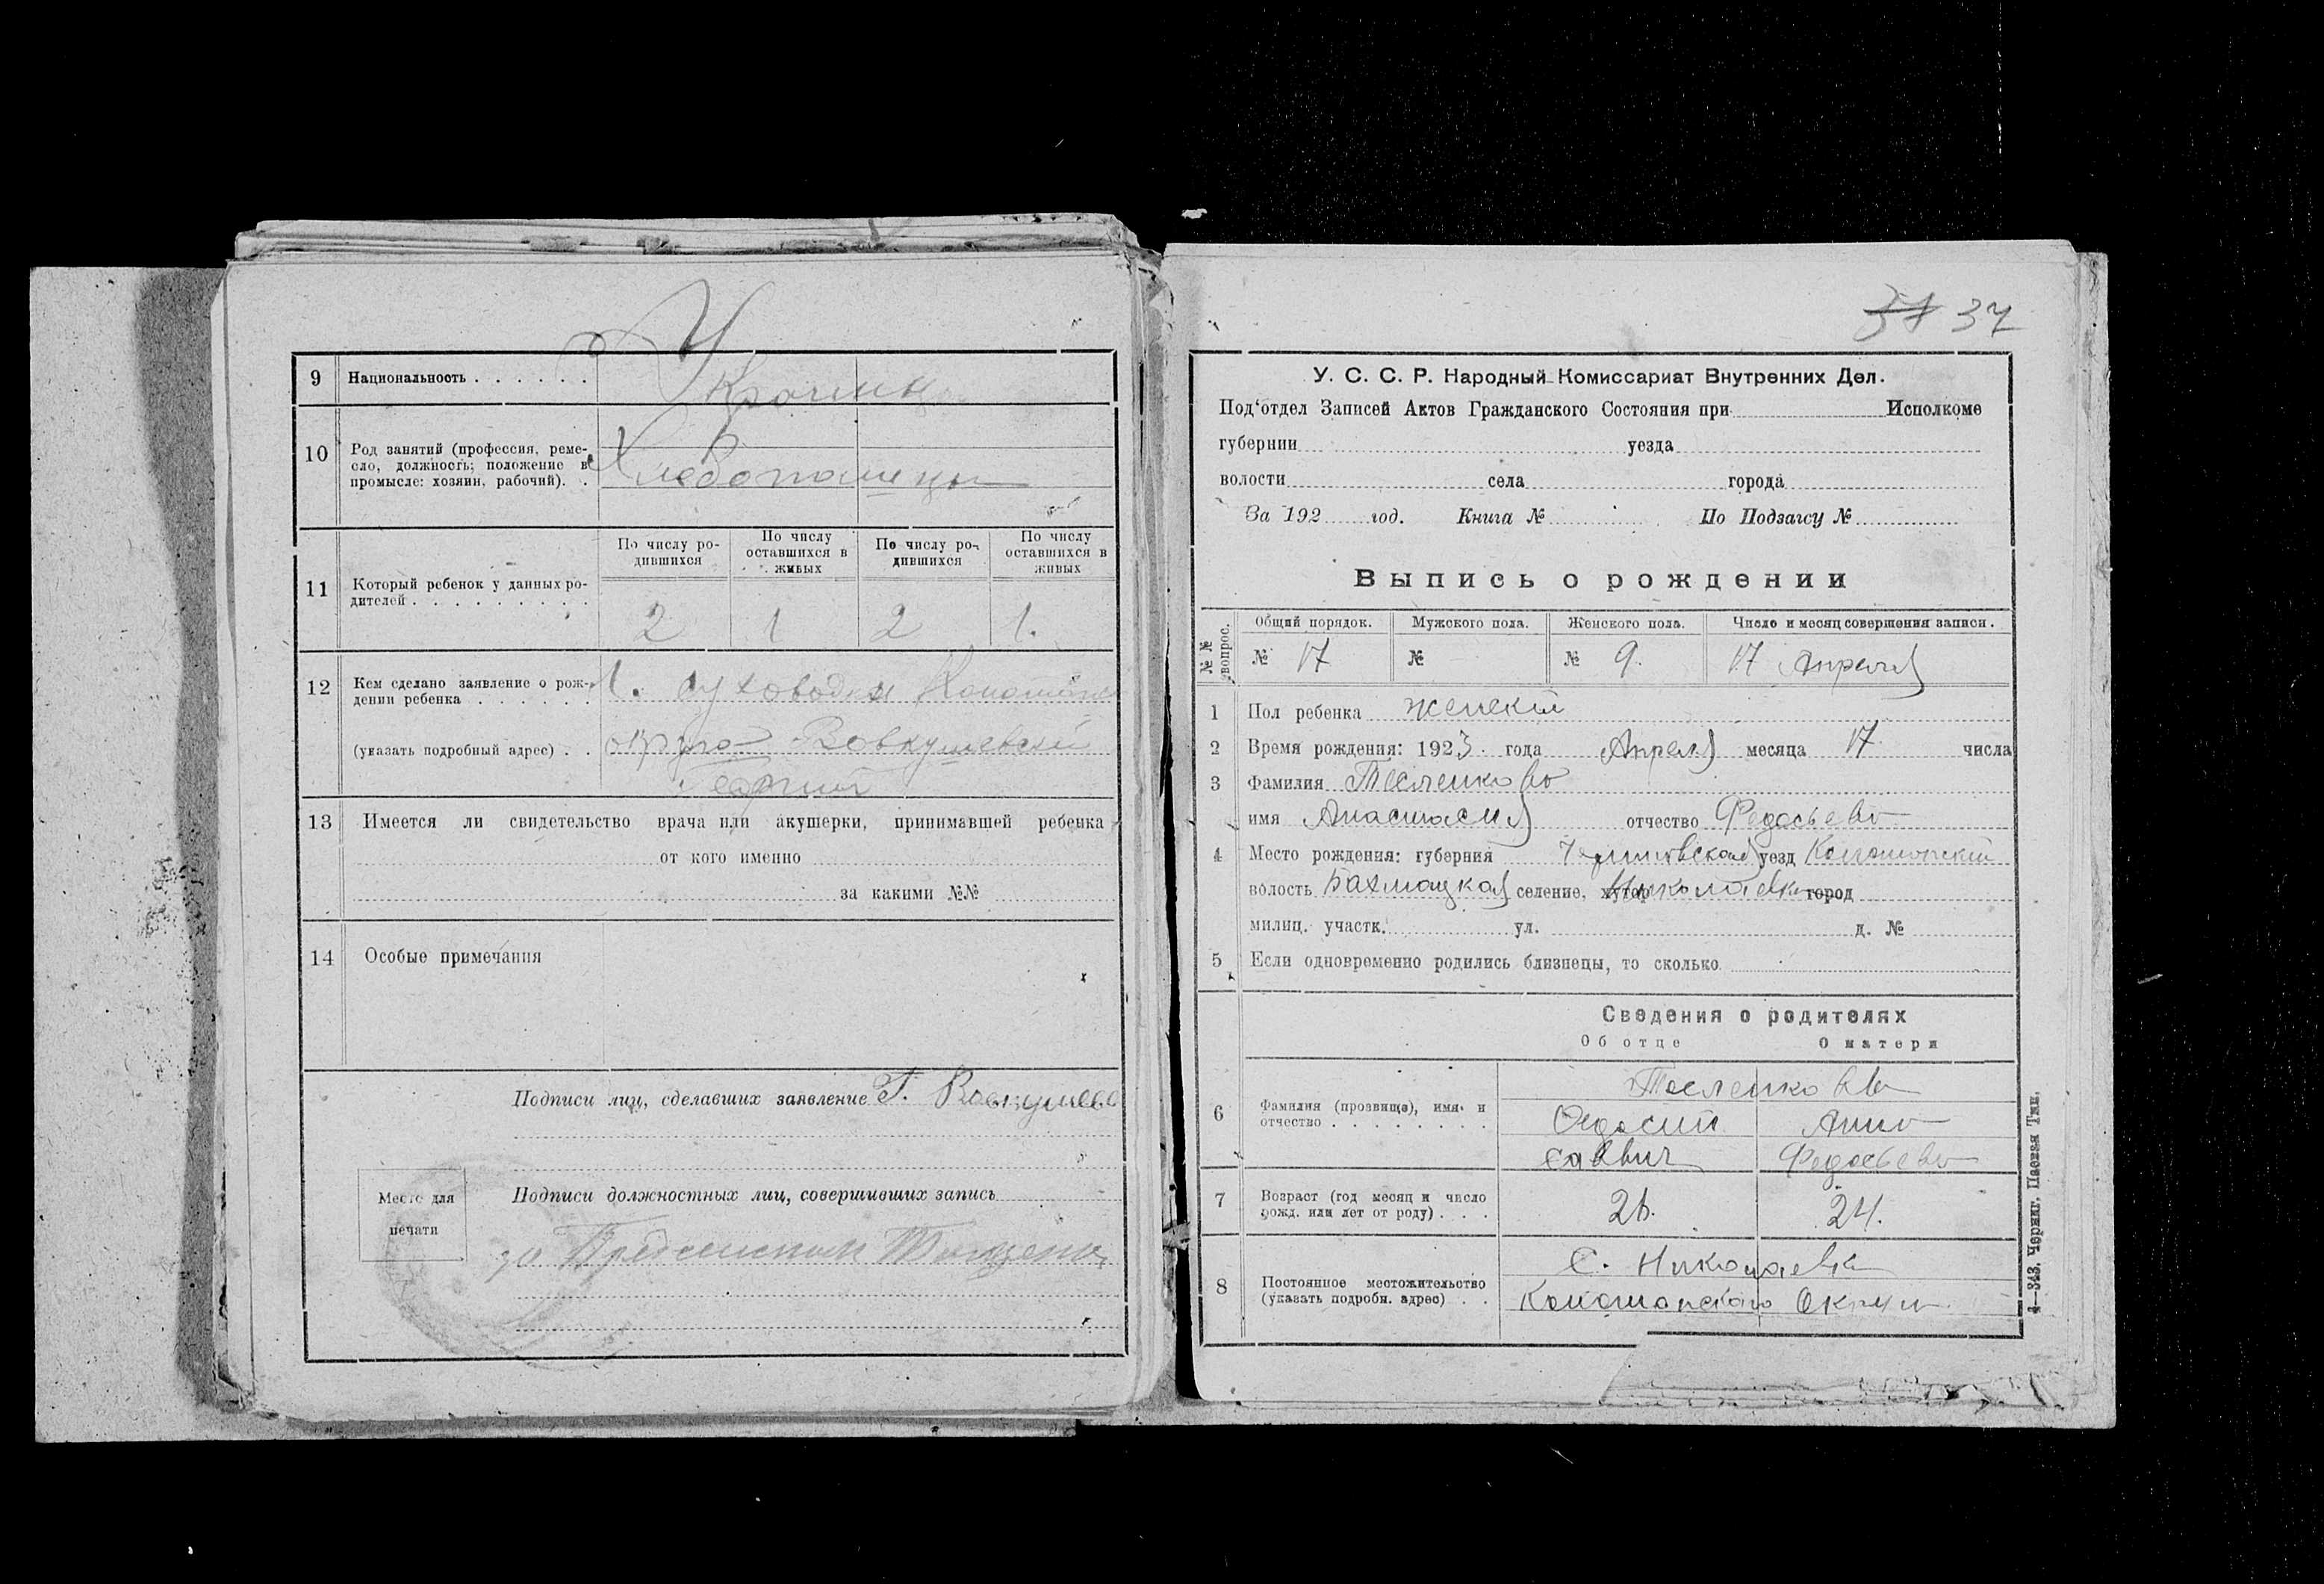 9 Национальность . . . . . . Украинцы
10 Род занятий (профессия, реме-
сло, должность; положение в
промысле: хозяин, рабочий). . Хлебопашцы
По числу ро-
дившихся
По числу
оставшихся в
живых
По числу ро-
дившихся
По числу
оставшихся в
живых
11 Который ребенок у данных ро-
дителей . . . . . . . . .
2 1 2 1.
12 Кем сделано заявление о рож-
дении ребенка . . . . . .
(указать подробный адрес) . .
округа Вовкушевский
Георгий
13 Имеется ли свидетельство врача или акушерки, принимавшей ребенка
от кого именно
за какими №№
14 Особые примечания
Подписи лиц, сделавших заявление Г. Вовкушевс
Место для
печати
Подписи должностных лиц, совершивших запись
за
37 37
У. С. С. Р. Народный Комиссариат Внутренних Дел.
Под‘отдел Записей Актов Гражданского Состояния при Исполкоме
губернии уезда
волости села города
За 192 год. Книга № По Подзагсу №
Выпись о рождении
№ № вопрос.
Общий порядок. Мужского пола. Женского пола. Число и месяц совершения записи.
№ 17 № № 9. 17 Апреля
1 Пол ребенка женский
2 Время рождения: 1923 года Апреля месяца 17 числа
3 Фамилия Тесленкова
имя Анастасия отчество Федосьева
4 Место рождения: губерния Черниговская уезд Конотопский
волость Бахмацкая селение, хутор Николаевка город
милиц. участк. ул. д. №
5 Если одновременно родились близнецы, то сколько
Сведения о родителях
Об отце О матери
6 Фамилия (прозвище), имя и
отчество . . . . . . . .
Тесленковы
Федосий Анна
Саввич Федосьева
7 Возраст (год месяц и число
рожд. или лет от роду) . . .
26. 24.
8 Постоянное местожительство
(указать подробн. адрес) . .
С. Николаевка
Конотопского Округа
4—343. Черниг. Паевая Тип.